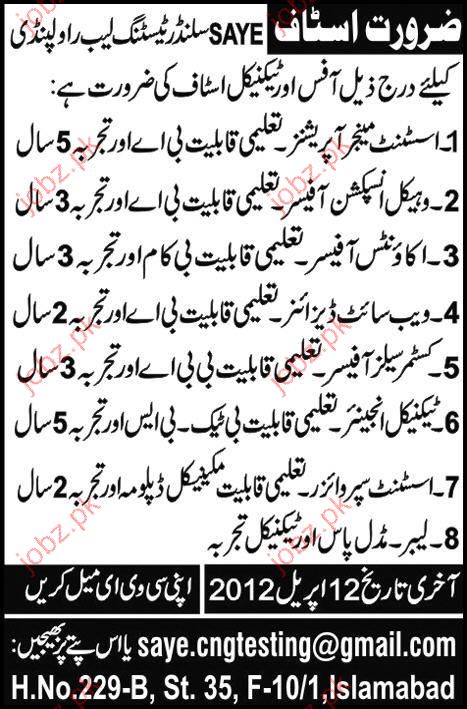 ضرورت اسٹاف SAYE سلنڈر ٹیسٹنگ لیب راولپنڈی
کیلئے درج ذیل آفس اور ٹیکنیکل اسٹاف کی ضرورت ہے:
1۔ اسسٹنٹ مینجر آپریشنز۔ تعلیمی قابلیت بی اے اور تجربہ 5 سال
2۔ وہیکل انسپکشن آفیسر۔ تعلیمی قابلیت بی اے اور تجربہ 3 سال
3۔ اکاؤنٹس آفیسر۔ تعلیمی قابلیت بی کام اور تجربہ 3 سال
4۔ ویب سائٹ ڈیزائنر۔ تعلیمی قابلیت بی اے اور تجربہ 2 سال
5۔ کسٹمر سیلز آفیسر۔ تعلیمی قابلیت بی بی اے اور تجربہ 3 سال
6۔ ٹیکنیکل انجینئر۔ تعلیمی قابلیت بی ٹیک۔ بی ایس اور تجربہ 5 سال
7۔ اسسٹنٹ سپروائزر۔ تعلیمی قابلیت مکینیکل ڈپلومہ اور تجربہ 2 سال
8۔ لیبر۔ مڈل پاس اور ٹیکنیکل تجربہ
آخری تاریخ 12 اپریل 2012 اپنی سی وی ای میل کریں
saye.cngtesting@gmail.com یا اس پتے پر بھیجیں:
H.No.229-B, St. 35, F-10/1,Islamabad
jobz.pk